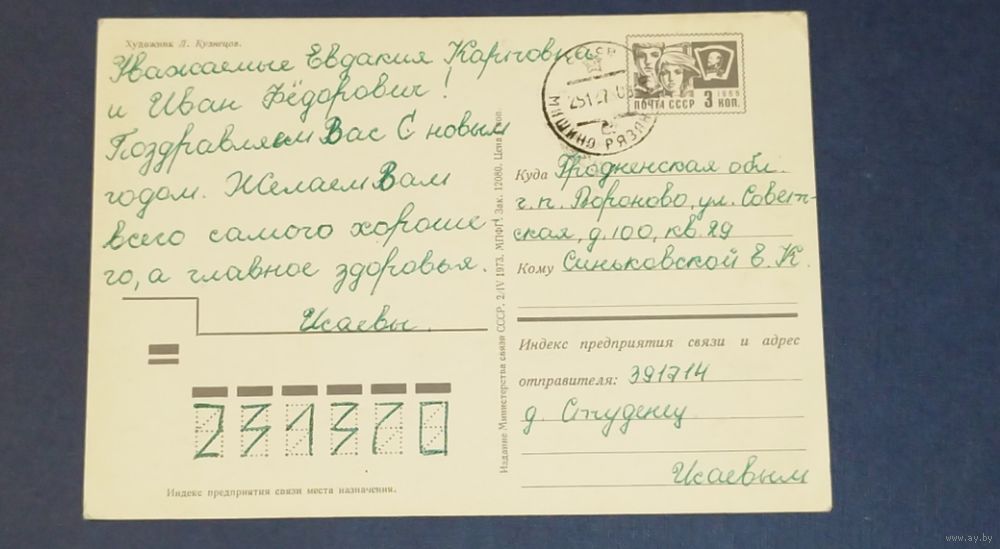 Художник Л. Кузнецов.
Уважаемые Евдакия Карповна
и Иван Фёдорович!
Поздравляем Вас С новым
годом. Желаем Вам
всего самого хороше-
го, а главное здоровья.
Исаевы.
231370
Индекс предприятия связи места назначения.
Издание Министерства связи СССР. 2/IV 1973. МПФГ. Зак. 12080. Цена 4 коп.
ПОЧТА СССР 3 КОП.
1966
РЯЗАН
Куда Гродненская обл.
г.п. Вороново, ул. Совет-
ская, д. 100, кв. 29
Кому Синьковской Е. К.
Индекс предприятия связи и адрес
отправителя: 391714
д. Студенец
Исаевым
www.ay.by